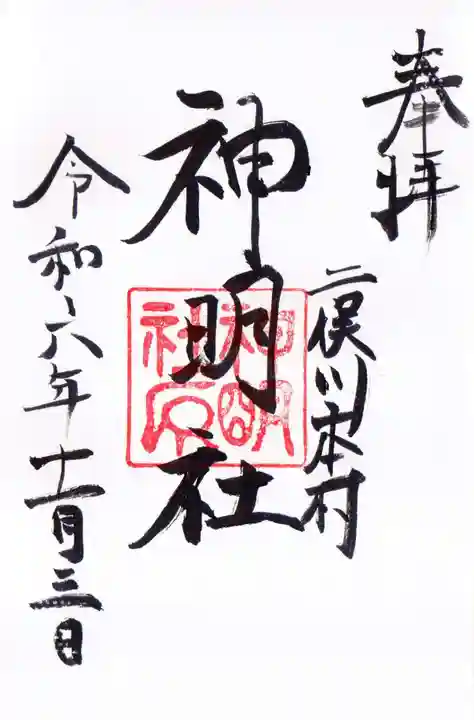 奉拝
二俣川本村
神明社
神明
社印
令和六年十一月三日